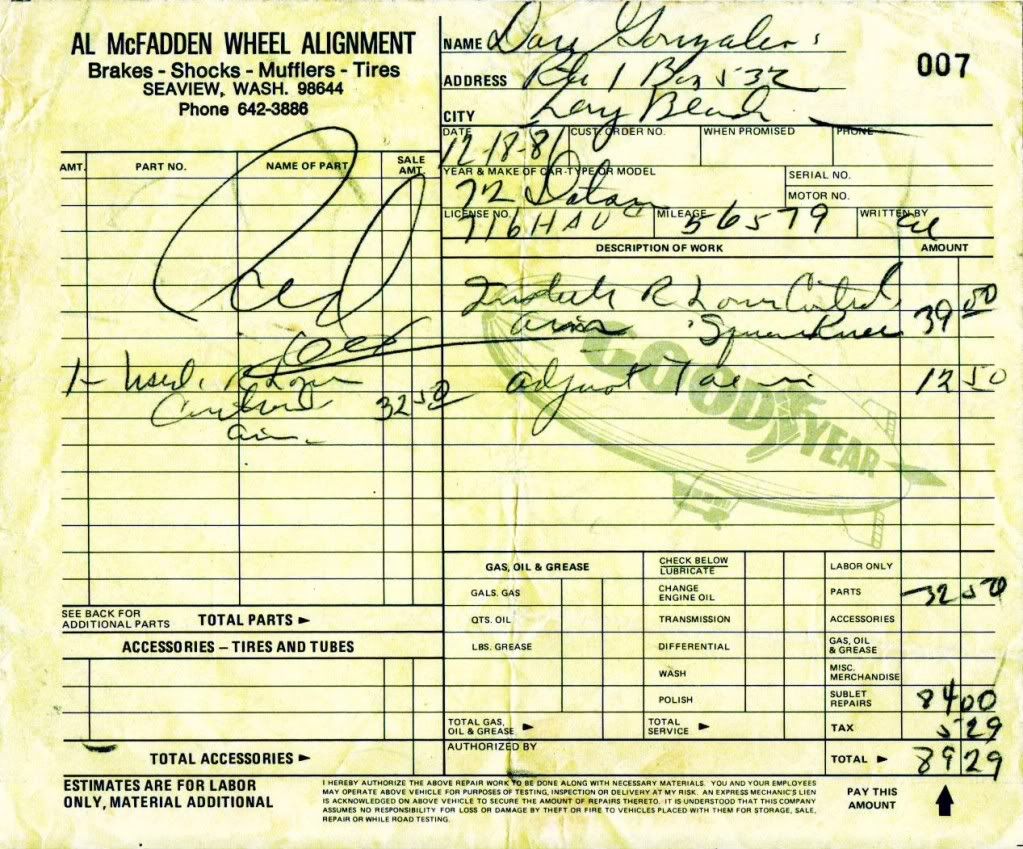 AL McFADDEN WHEEL ALIGNMENT
Brakes - Shocks - Mufflers - Tires
SEAVIEW, WASH. 98644
Phone 642-3886
007
NAME Dave Gonzales
ADDRESS Rte 1 Box 532
CITY Long Beach
DATE 12-18-81
CUST. ORDER NO.
WHEN PROMISED
PHONE
YEAR & MAKE OF CAR-TYPE OR MODEL
72 Datsun
SERIAL NO.
MOTOR NO.
LICENSE NO. 716 HAU
MILEAGE 56579
WRITTEN BY Al
AMT. PART NO. NAME OF PART SALE AMT.
Pd
1- Used R Lower
Control 32 50
arm
SEE BACK FOR ADDITIONAL PARTS TOTAL PARTS ►
ACCESSORIES – TIRES AND TUBES
TOTAL ACCESSORIES ►
DESCRIPTION OF WORK AMOUNT
Installed R Lower Control
arm 39 00
adjust Toe in 12 50
GOODYEAR
GAS, OIL & GREASE
GALS. GAS
QTS. OIL
LBS. GREASE
TOTAL GAS, OIL & GREASE ►
CHECK BELOW
LUBRICATE
CHANGE ENGINE OIL
TRANSMISSION
DIFFERENTIAL
WASH
POLISH
TOTAL SERVICE ►
LABOR ONLY
PARTS 32 50
ACCESSORIES
GAS, OIL & GREASE
MISC. MERCHANDISE
SUBLET REPAIRS 84 00
TAX 5 29
AUTHORIZED BY
TOTAL ► 89 29
ESTIMATES ARE FOR LABOR
ONLY, MATERIAL ADDITIONAL
I HEREBY AUTHORIZE THE ABOVE REPAIR WORK TO BE DONE ALONG WITH NECESSARY MATERIALS. YOU AND YOUR EMPLOYEES
MAY OPERATE ABOVE VEHICLE FOR PURPOSES OF TESTING, INSPECTION OR DELIVERY AT MY RISK. AN EXPRESS MECHANIC'S LIEN
IS ACKNOWLEDGED ON ABOVE VEHICLE TO SECURE THE AMOUNT OF REPAIRS THERETO. IT IS UNDERSTOOD THAT THIS COMPANY
ASSUMES NO RESPONSIBILITY FOR LOSS OR DAMAGE BY THEFT OR FIRE TO VEHICLES PLACED WITH THEM FOR STORAGE, SALE,
REPAIR OR WHILE ROAD TESTING.
PAY THIS
AMOUNT